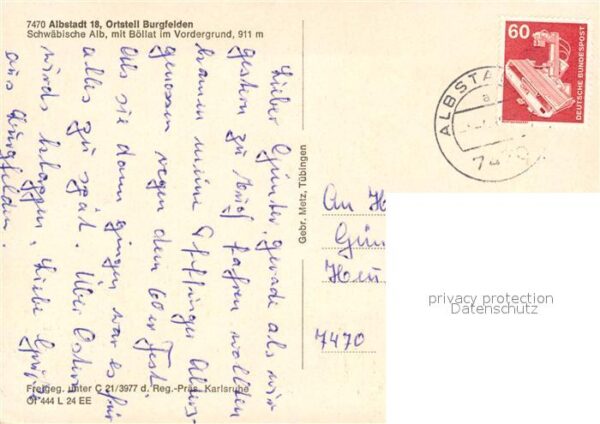 7470 Albstadt 18, Ortsteil Burgfelden
Schwäbische Alb, mit Böllat im Vordergrund, 911 m
Lieber Günter, gerade als wir
gestern zu Euch fahren wollten
kamen meine Pfeffinger
genossen wegen dem 60er Fest.
Als sie dann gingen war es für
alles zu spät. Über Ostern
würds klappen. Liebe Grüße
aus Burgfelden.
Gebr. Metz, Tübingen
60
DEUTSCHE BUNDESPOST
ALBSTA
a
An H
Gün
7470
privacy protection
Datenschutz
Freigeg. unter C 21/3977 d. Reg.-Präs. Karlsruhe
Of 444 L 24 EE